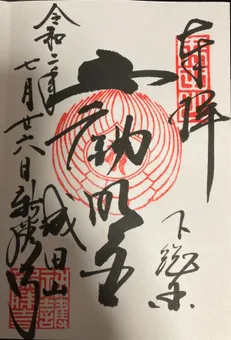 奉拝
下総
不動明王
成田山
令和二年
七月廿六日新勝寺